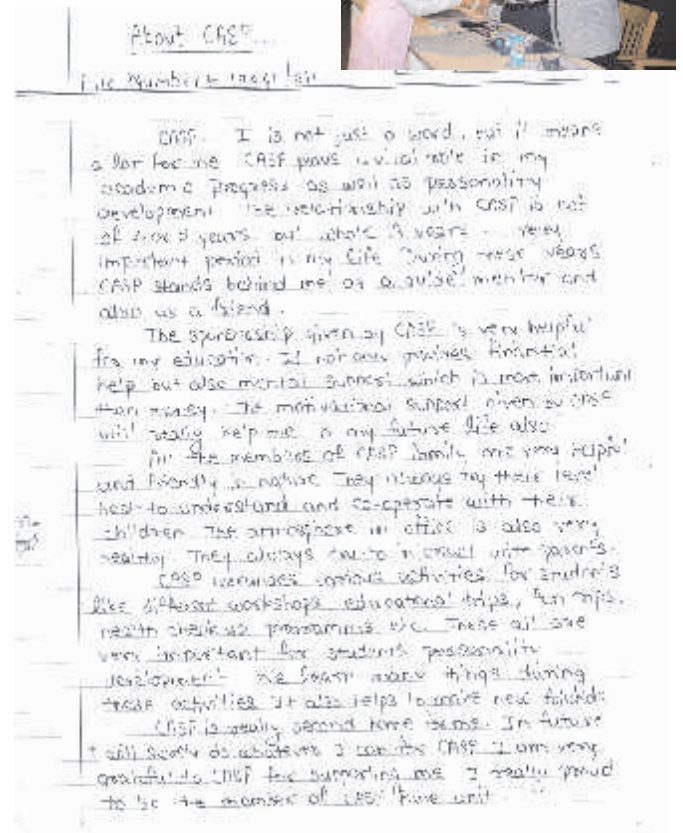 About CASP
File Number
CASP. I is not just a word, but it means
a lot for me CASP plays a vital role in my
academic progress as well as personality
development The relationship with CASP is not
of 2 or 3 years but whole years very
important period in my life During these years
CASP stands behind me as a guide mentor and
also as a friend.
The sponsorship given by CASP is very helpful
for my education. It not only provides financial
help but also mental support which is more important
than money. The motivational support given by CASP
will really help me in my future life also
All the members of CASP family are very helpful
and friendly in nature They always try their level
best to understand and co-operate with their
children The atmosphere in office is also very
healthy. They always interact with parents.
CASP various activities for students
like different workshops educational trips, fun trips,
health check up programms etc. These all are
very important for students personality
development. We learn many things during
these activities It also helps to make new friends
CASP is really second home In future
I will surely do whatever I can for CASP I am very
grateful to CASP for supporting me I really proud
to be the member of CASP Pune unit